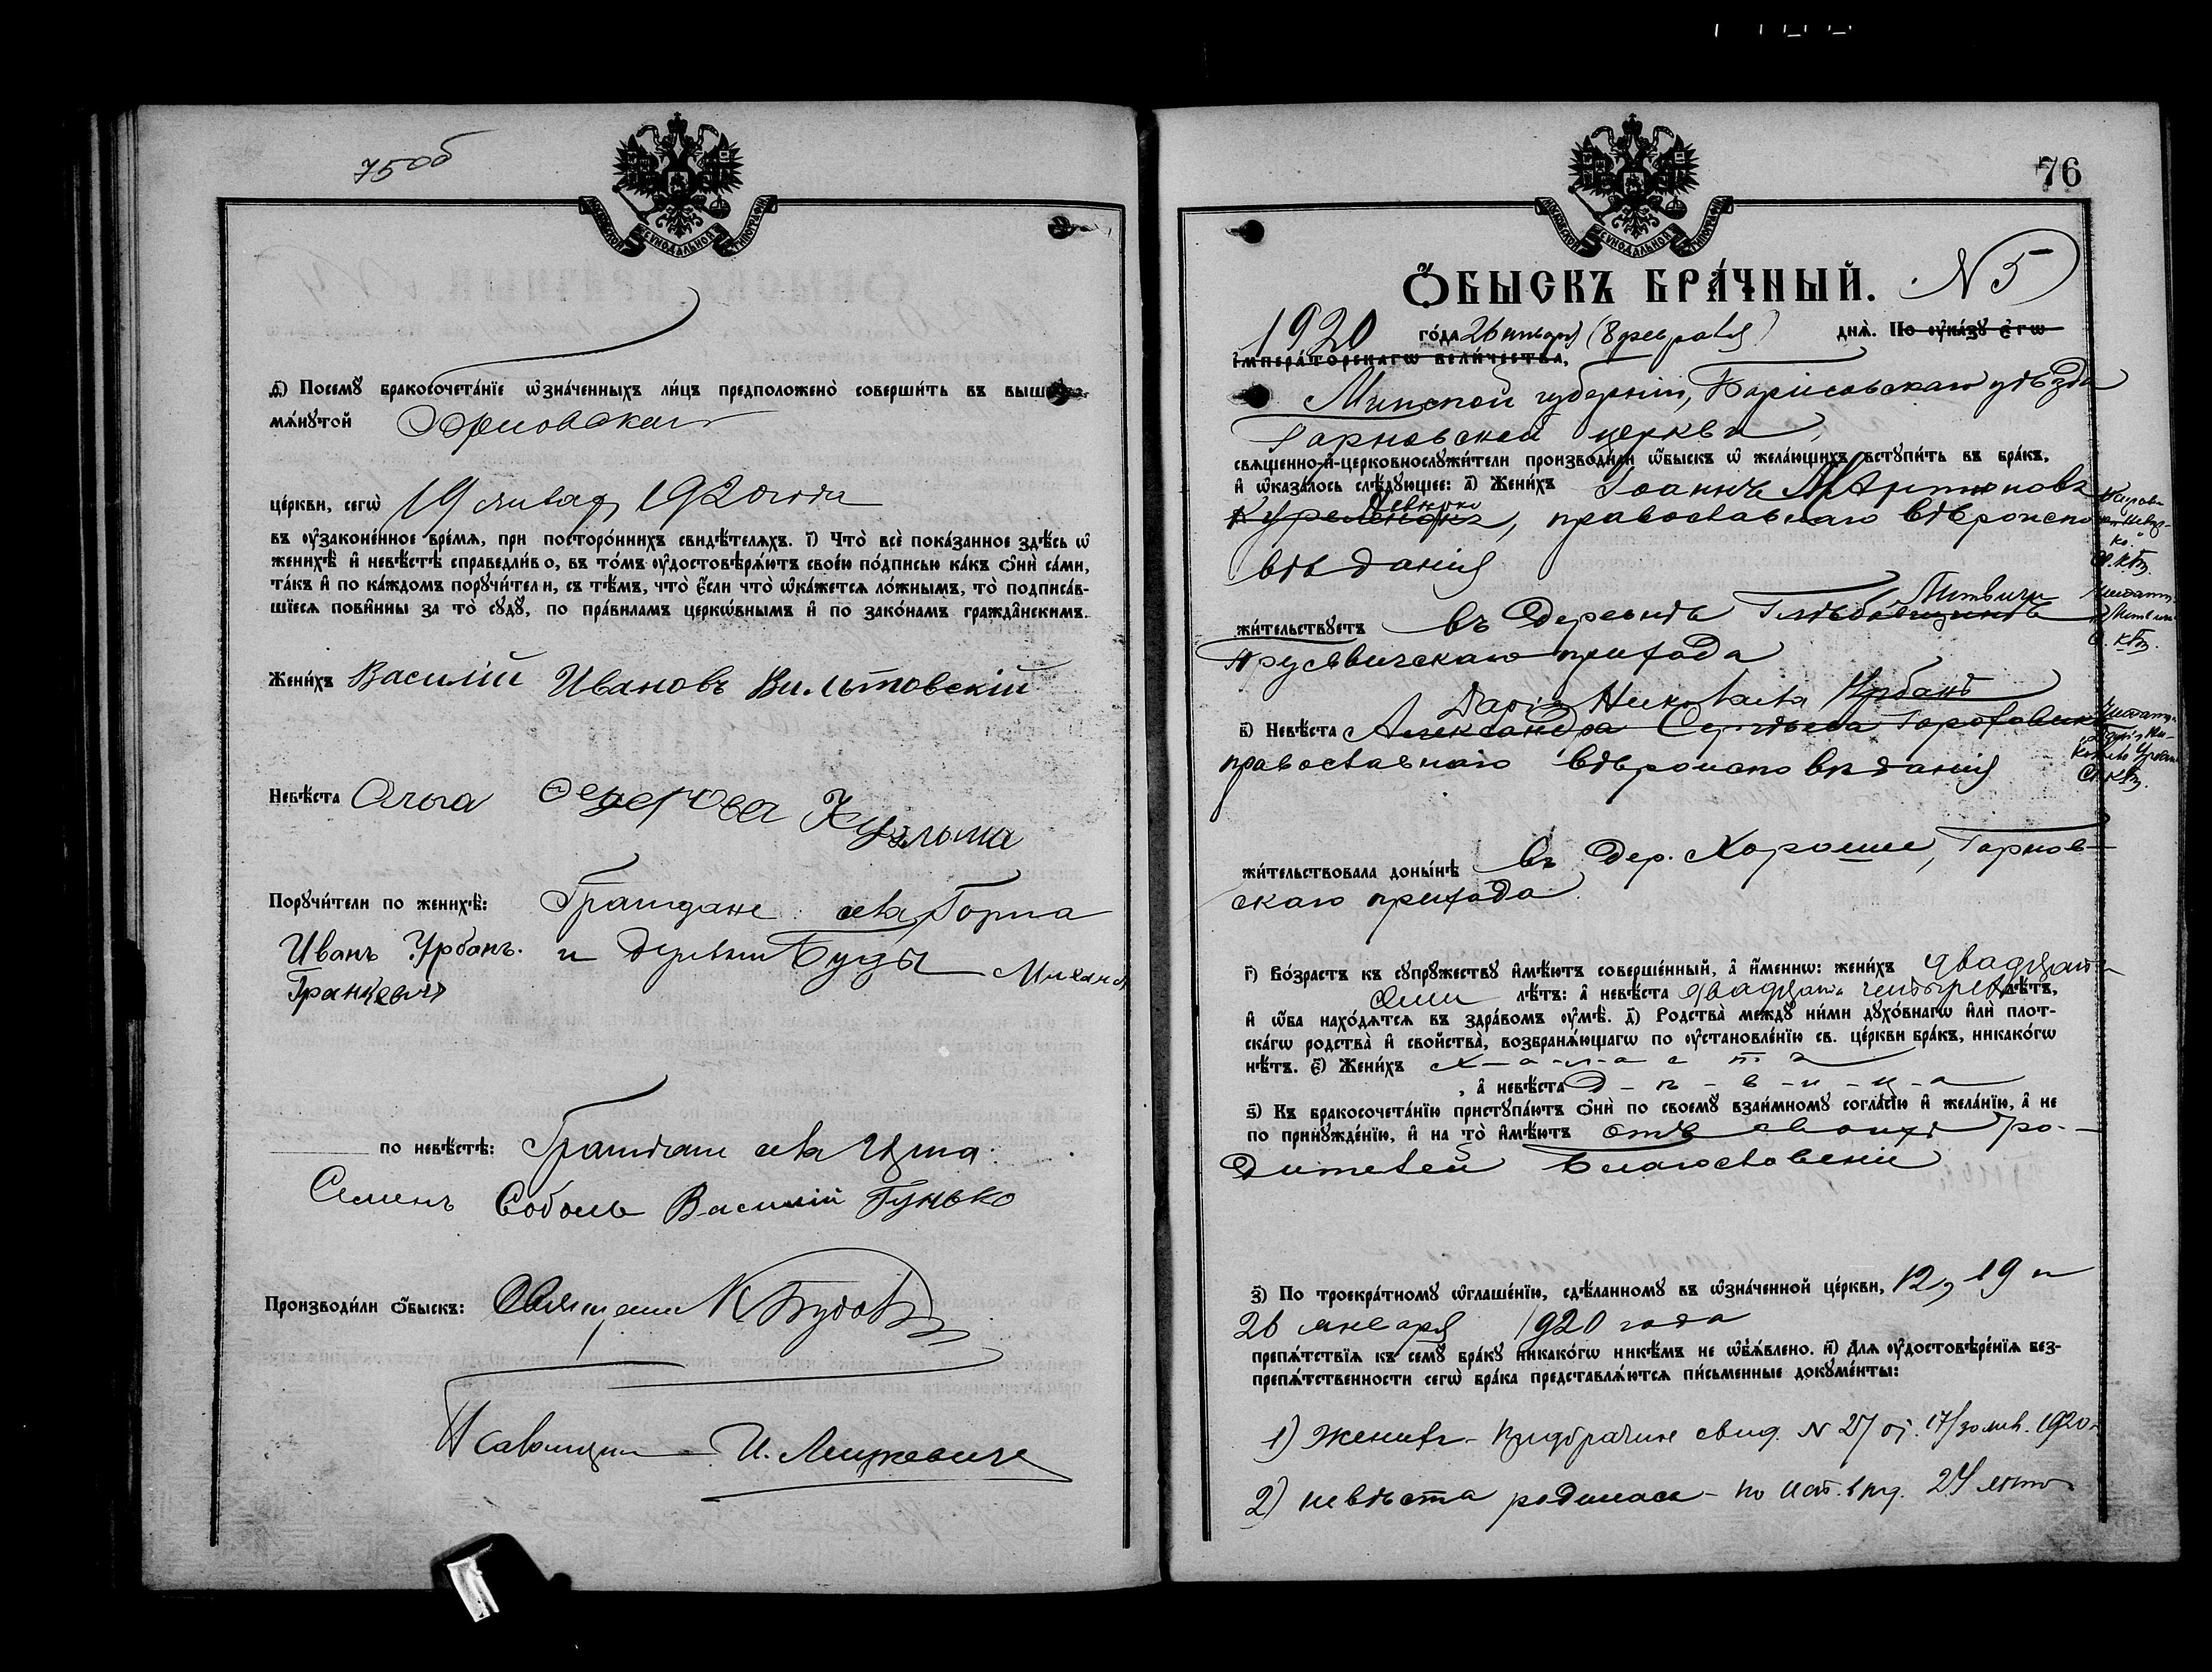 75об
МОСКОВСКОЙ СѴНОДАЛЬНОЙ ТИПОГРАФІИ
Ѳ҃) Посемꙋ̀ бракосочета́нїе ѡ҆зна́ченныхъ ли́цъ предположено̀ соверши́ть въ выш
мѧ́нꙋтой
це́ркви, сегѡ̀ 19 января 1920 года
въ ᲂу҆зако́ненное вре́мѧ, при посторо́ннихъ свидѣ́телѧхъ. І҃) Что̀ всѐ пока́занное здѣ́сь ѡ҆
женихѣ̀ и҆ невѣ́стѣ справедли́во, въ то́мъ ᲂу҆достовѣрѧ́ютъ свое́ю по́дписью ка́къ ѻ҆нѝ са́ми,
та́къ и҆ по ка́ждомъ порꙋчи́тели, съ тѣ́мъ, что̀ є҆́сли что̀ ѡ҆ка́жетсѧ ло́жнымъ, то̀ подписа́в-
шїесѧ пови́нны за то̀ сꙋдꙋ̀, по пра́виламъ церкѡ́внымъ и҆ по зако́намъ гражда́нскимъ.
Жени́хъ Василій Ивановъ Вильтовскій
Невѣ́ста Ольга Федорова Кузьма
Порꙋчи́тели по женихѣ̀: Граждане села Горна
Иванъ Урбанъ и деревни Буды Михаил
Гранкевичъ
по невѣ́стѣ: Граждане села
Семенъ Соболь Василій Гунько
Производи́ли ѻ҆́быскъ: Священникъ К Будовъ
Псаломщикъ И.
76
МОСКОВСКОЙ СѴНОДАЛЬНОЙ ТИПОГРАФІИ
Ѻ҆́БЫСКЪ БРА́ЧНЫЙ. N 5
1920 го́да 26 января (8 февраля) днѧ̀. По ᲂу҆ка́зꙋ є҆гѡ̀
і҆мпера́торскагѡ вели́чества,
Минской губерніи, Борисовскаго уѣзда
Гарновской церкви,
свѧще́нно-и҆-церковнослꙋжи́тели производи́ли ѻ҆́быскъ ѡ҆ жела́ющихъ встꙋпи́ть въ бра́къ,
и҆ ѡ҆каза́лось слѣ́дꙋющее: а҃) Жени́хъ Іоаннъ Мартиновъ
Куреленокъ, православнаго вѣроиспо
вѣданія
Митвичи
жи́тельствꙋетъ въ деревнѣ
прихода
Дарія Николаева Урбанъ
в҃) Невѣ́ста Александра Сергѣева
православнаго вѣроисповѣданія
жи́тельствовала доны́нѣ въ дер. Хороше, Гарнов-
скаго прихода
г҃) Во́зрастъ къ сꙋпрꙋ́жествꙋ и҆мѣ́ютъ соверше́нный, а҆ и҆́меннѡ: жени́хъ двадцати
семи лѣ́тъ: а҆ невѣ́ста двадцати четырехъ лѣ́тъ,
и҆ ѻ҆́ба нахо́дѧтсѧ въ здра́вомъ ᲂу҆мѣ̀. д҃) Родства̀ междꙋ̀ ни́ми дꙋхо́внагѡ и҆лѝ пло́т-
скагѡ родства̀ и҆ сво́йства̀, возбранѧ́ющагѡ по ᲂу҆становле́нїю св. це́ркви бра́къ, никако́гѡ
нѣ́тъ. є҃) Жени́хъ х-о-л-о-с-т-ъ
, а҆ невѣ́ста д-ѣ-в-и-ц-а
ѕ҃) Къ бракосочета́нїю пристꙋпа́ютъ ѻ҆нѝ по своемꙋ̀ взаи́мномꙋ согла́сїю и҆ жела́нїю, а҆ не
по принꙋжде́нїю, и҆ на то̀ и҆мѣ́ютъ отъ своихъ ро-
дителей благословеніе
з҃) По троекра́тномꙋ ѡ҆глаше́нїю, сдѣ́ланномꙋ въ ѡ҆зна́ченной це́ркви, 12, 19 и
26 января 1920 года
препѧ́тствїѧ къ семꙋ̀ бра́кꙋ никако́гѡ никѣ́мъ не ѡ҆б̾ѧ́влено. и҃) Длѧ ᲂу҆достовѣре́нїѧ без-
препѧ́тственности сегѡ̀ бра́ка представлѧ́ютсѧ пи́сьменные докꙋме́нты:
1) Женихъ - предбрачное свид. N 27 от 17/30 янв. 1920 г.
2) невѣста родилась - 24 лѣтъ